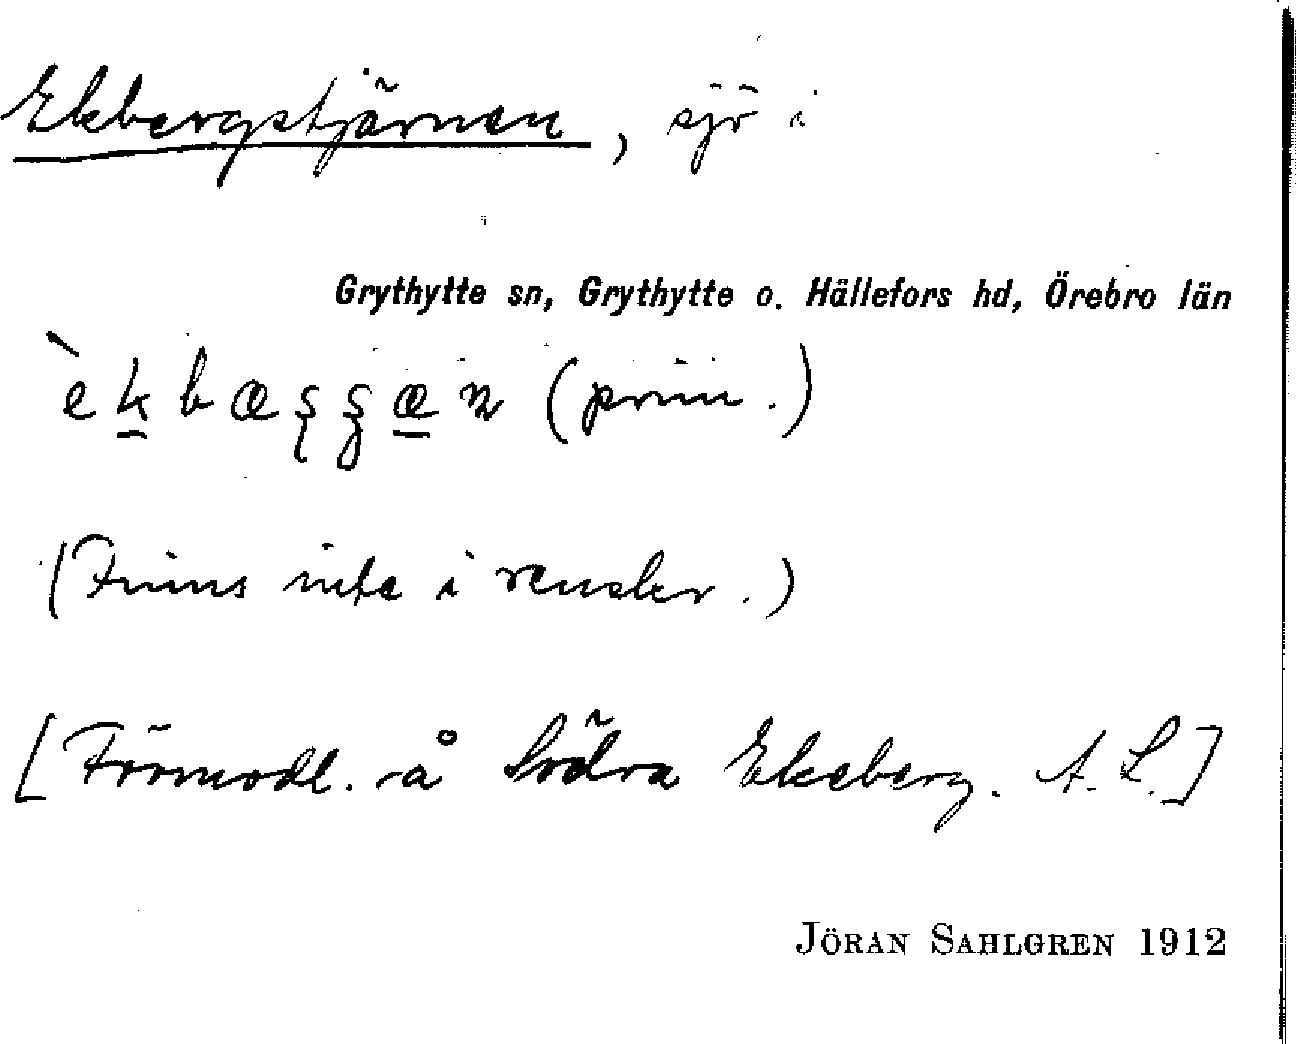 Ekbergstjärnen, sjö i
Grythytte sn, Grythytte o. Hällefors hd, Örebro län
(prim.)
(Finns inte i rensler.)
[Förmodl. å Södra Ekeberg. A. L.]
JÖRAN SAHLGREN 1912